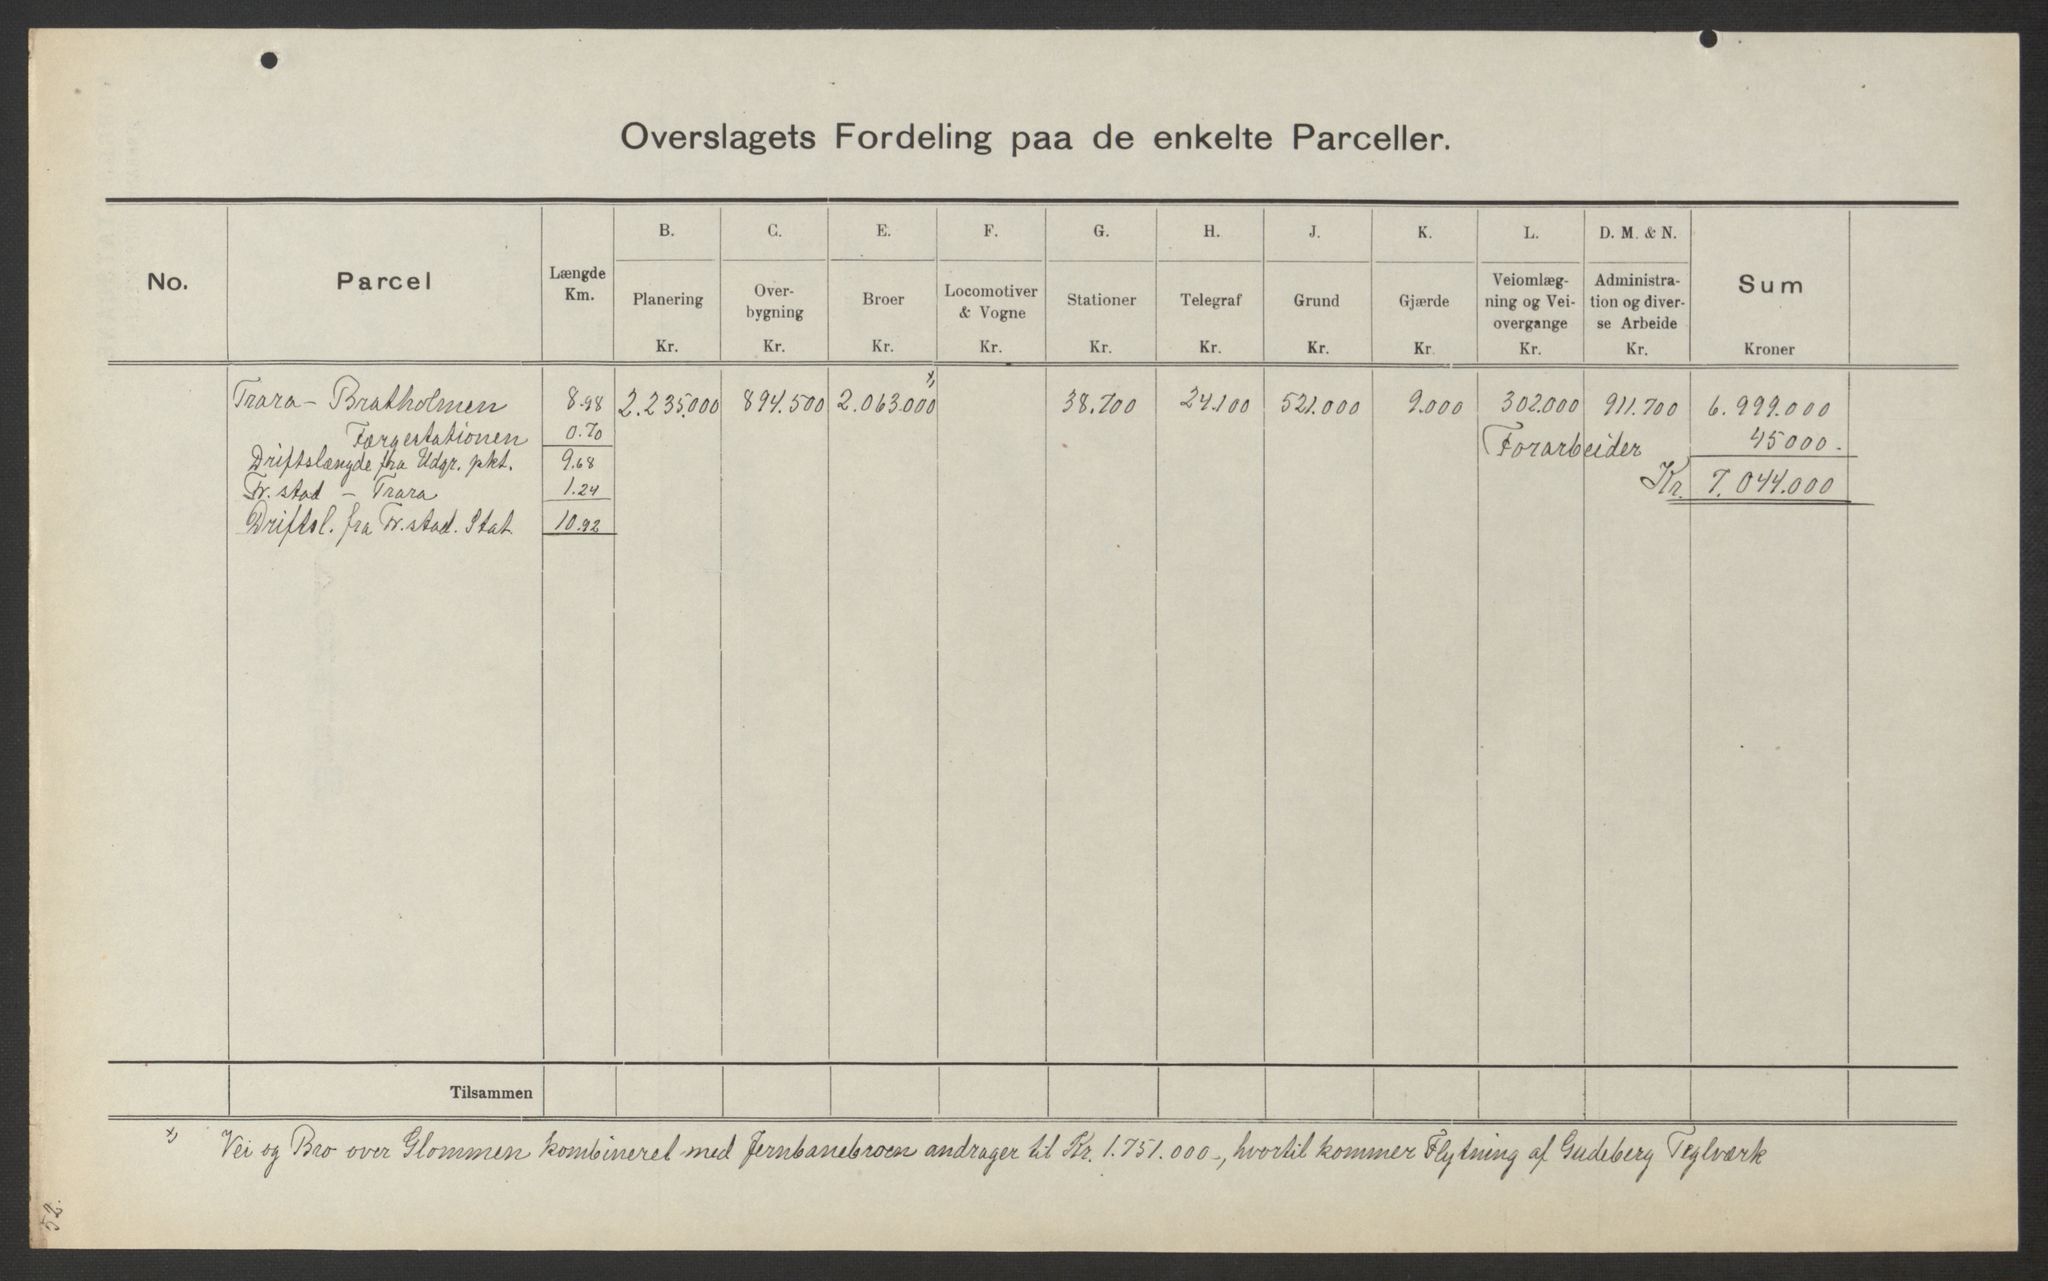 Overslagets Fordeling paa de enkelte Parceller.
No. Parcel Længde Km. B. Planering Kr. C. Over-bygning Kr. E. Broer Kr. F. Locomotiver & Vogne Kr. G. Stationer Kr. H. Telegraf Kr. J. Grund Kr. K. Gjærde Kr. L. Veiomlæg-ning og Vei-overgange Kr. D. M. & N. Administra-tion og diver-se Arbeide Kr. Sum Kroner
Trara - Bratholmen 8.98 2.235.000 894.500 2.063.000 x) 38.700 24.100 521.000 9.000 302.000 911.700 6.999.000
Færgestationen 0.70 Forarbeider 45000.
Driftslængde fra Udgr. pkt. 9.68 Kr. 7.044.000
Fr.stad - Trara 1.24
Driftsl. fra Fr.stad. Stat. 10.92
Tilsammen
x) Vei og Bro over Glommen kombineret med Jernbanebroen andrager til Kr. 1.751.000-, hvortil kommer Flytning af Gudeberg Teglværk
52.